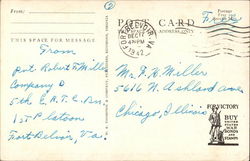 From:
POST CARD
ADDRESS ONLY
Free
FORT BELVOIR, VA
1942
THIS SPACE FOR MESSAGE
From
Pvt. Robert F. Miller
Company D
5th E.R.T.C. Bn.
1st Platoon
Fort Belvoir, Va.
Mr. F. K. Miller
5616 N. Ashland ave
Chicago, Illinois
FOR VICTORY
BUY
UNITED
STATES
WAR
BONDS
AND
STAMPS